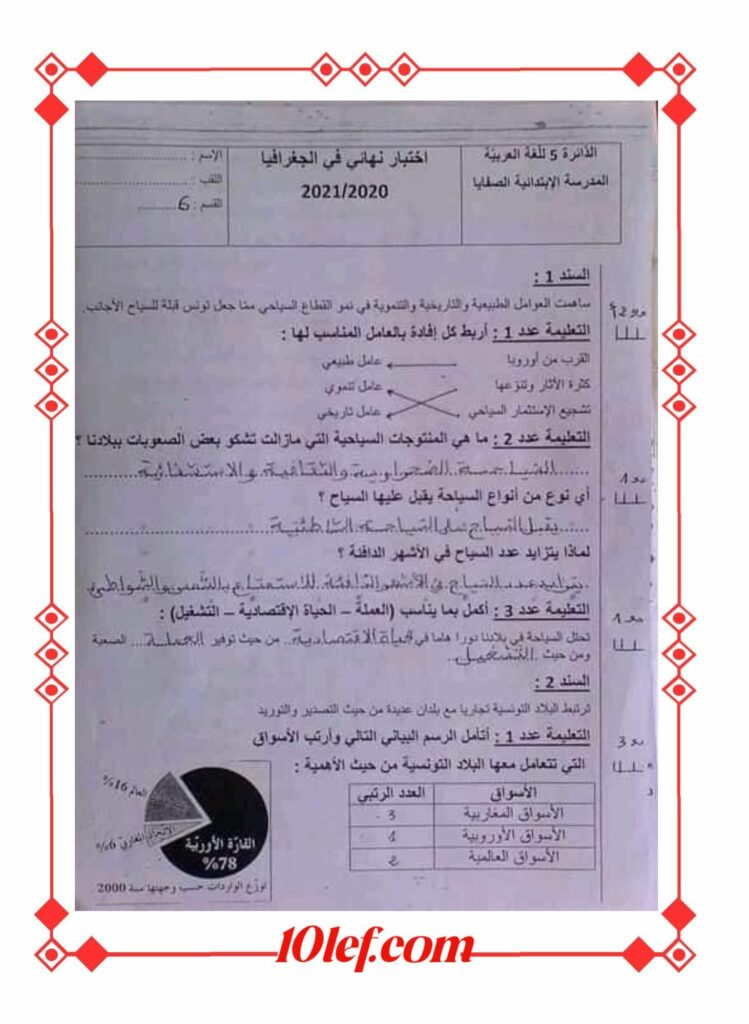 الدّائرة 5 للّغة العربيّة
المدرسة الإبتدائية الصفايا
اختبار نهائي في الجغرافيا
2021/2020
الإسم : ..............................
اللقب : ..............................
القسم : 6..........
السند 1 :
ساهمت العوامل الطبيعية والتاريخية والتنموية في نمو القطاع السياحي ممّا جعل تونس قبلة للسياح الأجانب.
التعليمة عدد 1 : أربط كل إفادة بالعامل المناسب لها :
القرب من أوروبا عامل طبيعي
كثرة الآثار وتنوّعها عامل تنموي
تشجيع الإستثمار السياحي عامل تاريخي
التعليمة عدد 2 : ما هي المنتوجات السياحية التي مازالت تشكو بعض الصعوبات ببلادنا ؟
السّياحة الصّحراوية والثّقافية والاستشفائية
أي نوع من أنواع السياحة يقبل عليها السياح ؟
يقبل السّيّاح على السّياحة الشّاطئيّة
لماذا يتزايد عدد السياح في الأشهر الدافئة ؟
يتزايد عدد السيّاح في الأشهر الدّافئة للاستمتاع بالشّمس والشّواطئ
التعليمة عدد 3 : أكمل بما يناسب (العملة – الحياة الإقتصاديّة – التشغيل) :
تحتل السياحة في بلادنا دورا هاما في الحياة الاقتصاديّة.. من حيث توفير العملة... الصعبة
ومن حيث .التّشغيل..
السند 2 :
ترتبط البلاد التونسية تجاريا مع بلدان عديدة من حيث التصدير والتوريد
التعليمة عدد 1 : أتأمل الرسم البياني التالي وأرتب الأسواق
التي تتعامل معها البلاد التونسية من حيث الأهمية :
الأسواق العدد الرتبي
الأسواق المغاربية 3
الأسواق الأوروبية 1
الأسواق العالمية 2
العالم 16%
الإتحاد المغاربي 6%
القارّة الأوربّية
78%
توزّع الواردات حسب وجهتها سنة 2000
مع 1
مع 3
10lef.com